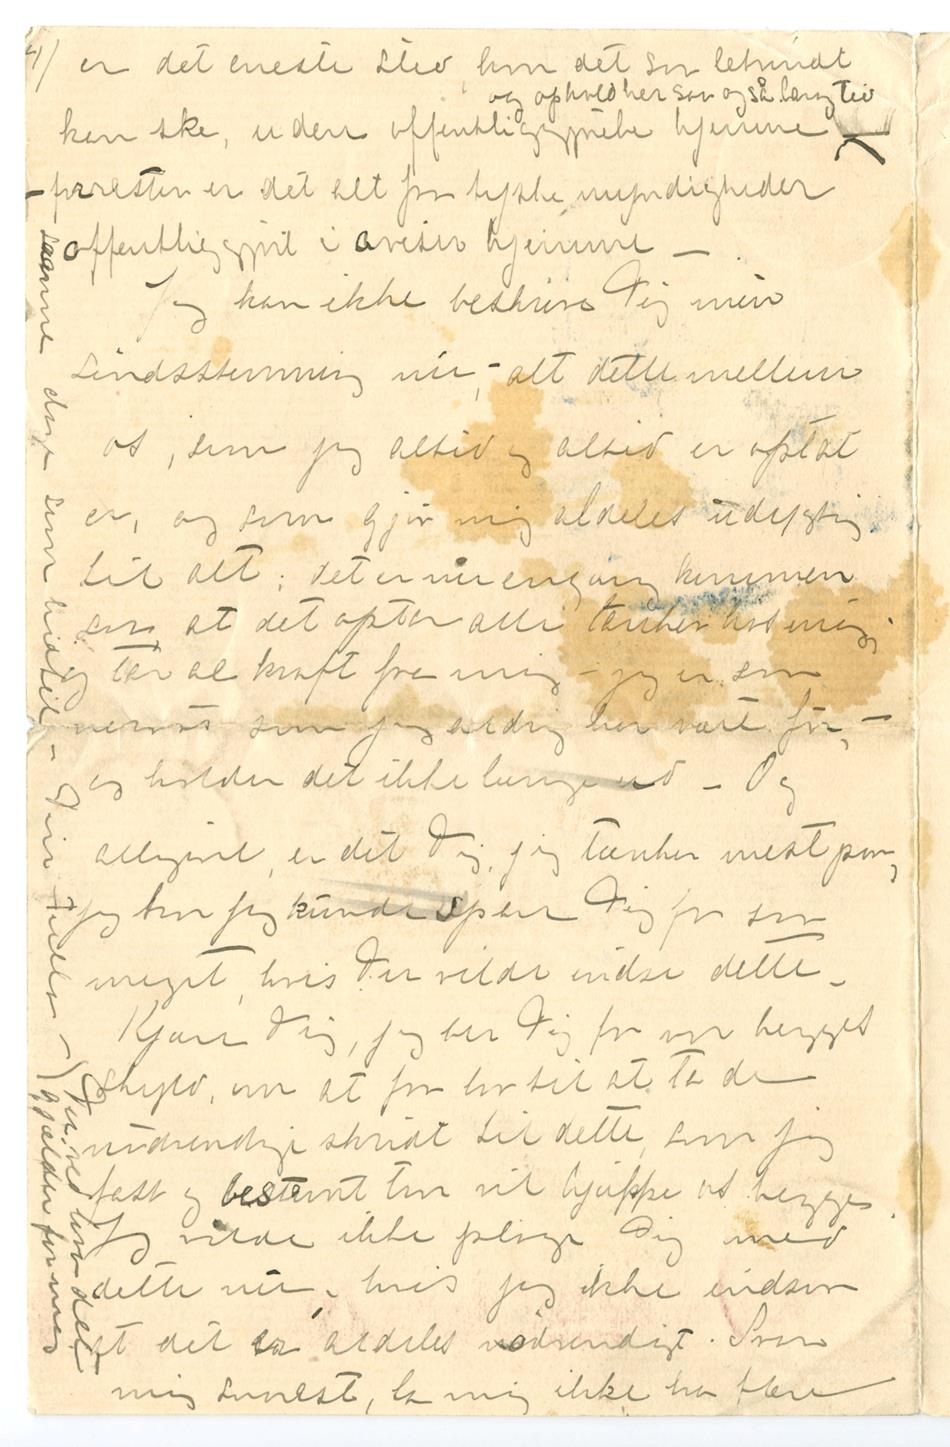 4/ er det eneste sted, hvor det saa letvindt
og ophold her saa og så lang tid
kan ske, uden offentliggjørelse hjemme
– forresten er det alt for tyske myndigheder
offentliggjort i aviser hjemme –
Jeg kan ikke beskrive Dig min
sindsstemning nu, – alt dette mellem
os, som jeg altid og altid er optat
er, og som gjør mig aldeles udygtig
til alt; det er nu engang kommen
saa at det optar alle tanker hos mig,
og tar al kraft fra mig – jeg er saa
nervøs som jeg aldrig har vært før, –
og holder det ikke længe ud – Og
alligevel, er det Dig, jeg tænker mest paa,
jeg tror jeg kunde spare Dig for saa
meget, hvis Du vilde indse dette –
Kjære Dig, jeg ber Dig for vor begges
skyld, om at faa lov til at ta de
nødvendige skridt til dette, som jeg
fast og bestemt tror vil hjælpe os begge.
Jeg vilde ikke plage Dig med
dette nu, hvis jeg ikke indsaa
at det er aldeles nødvendigt. Svar
mig snarest, la mig ikke ha flere
saamme dage som hidtil – Din Tulla –
Du ved hvad det
gjælder for mig